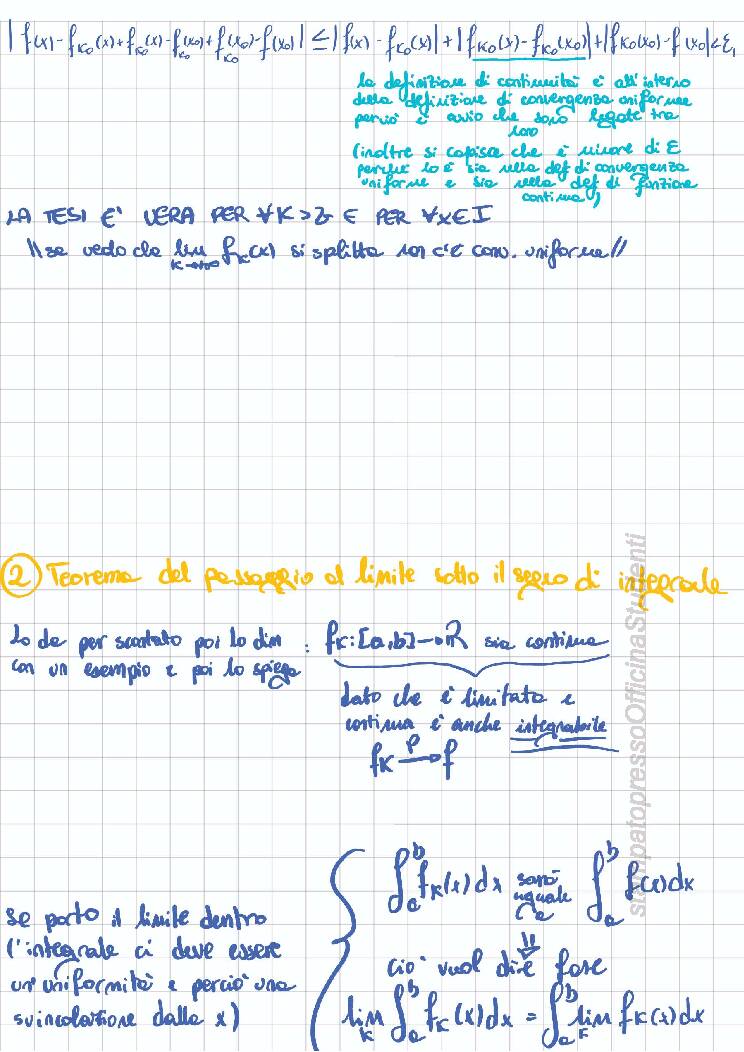 |f(x) - f_{K_0}(x) + f_{K_0}(x) - f_{K_0}(x_0) + f_{K_0}(x_0) - f(x_0)| ≤ |f(x) - f_{K_0}(x)| + |f_{K_0}(x) - f_{K_0}(x_0)| + |f_{K_0}(x_0) - f(x_0)| < ε,
la definizione di continuità è all'interno
della definizione di convergenza uniforme
perciò è ovvio che sono legate tra
loro
(inoltre si capisce che è minore di ε
perché lo è sia nella def di convergenza
uniforme e sia nella def di funzione
continua)
LA TESI E' VERA PER ∀K > E PER ∀x∈I
//se vedo che lim_{K→+∞} f_K(x) si splitta non c'è conv. uniforme//
② Teorema del passaggio al limite sotto il segno di integrale
Lo do per scontato poi lo dim
con un esempio e poi lo spiega
: f_K: [a,b] → ℝ sia continua
dato che è limitata e
continua è anche integrabile
f_K →^P f
∫_a^b f_K(x) dx sarà uguale a ∫_a^b f(x) dx
⇓
ciò vuol dire fare
lim_K ∫_a^b f_K(x) dx = ∫_a^b lim_K f_K(x) dx
se porto il limite dentro
l'integrale ci deve essere
un'uniformità e perciò una
svincolazione dalla x)
stampatopressoOfficinaStudenti